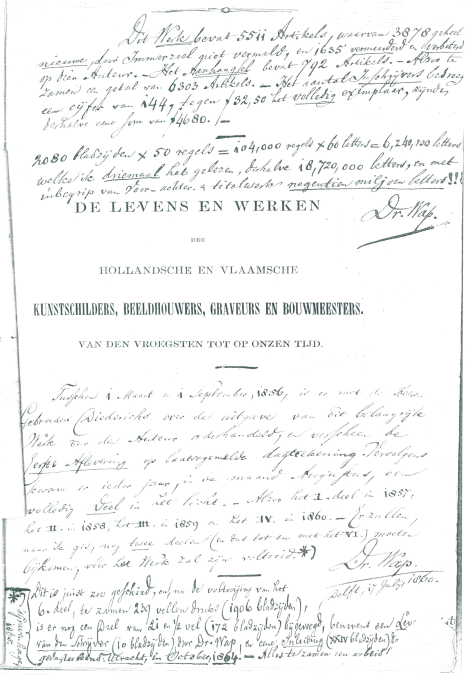 Dit Werk bevat 5511 Artikels, waarvan 3878 geheel
nieuwe, door Immerzeel niet vermeld, en 1635 vermeerderd en verbeterd
op dien Auteur. - Het Aanhangsel bevat 792 Artikels. - Alzoo te
zamen een getal van 6303 Artikels. - Het aantal Inschrijvers bedroeg
een cijfer van 144, tegen ƒ32,50 het volledig exemplaar, zijnde
derhalve eene som van ƒ4680.
2080 bladzijden × 50 regels = 104,000 regels × 60 letters = 6,240,000 letters
welke ik driemaal heb gelezen, derhalve 18,720,000 letters, en met
inbegrip van voor- achter- & titelwerk negentien miljoen letters!!!
Dr. Wap.
DE LEVENS EN WERKEN
DER
HOLLANDSCHE EN VLAAMSCHE
KUNSTSCHILDERS, BEELDHOUWERS, GRAVEURS EN BOUWMEESTERS.
VAN DEN VROEGSTEN TOT OP ONZEN TIJD.
Tusschen 1 Maart en 1 September, 1856, is er met de Heeren
Gebroeders Diederichs over de uitgave van dit belangrijke
Werk door den Auteur onderhandeld, en verscheen de
Eerste Aflevering op laatstgemelde dagteekening. Vervolgens
kwam er ieder jaar, in de maand Augustus, een
volledig Deel in het licht. - Alzoo het I. deel in 1857,
het II. in 1858, het III. in 1859 en het IV. in 1860. - Er zullen,
naar ik gis, nog twee deelen (en dus tot en met het VI.) moeten
bijkomen, vóór het Werk zal zijn voltooid. *)
Dr. Wap.
Delft, 17 July 1860.
* Dit is juist zoo geschied, en, na de voltooijing van het
6. deel, te zamen 239 vellen druks (1906 bladzijden),
is er nog een Deel van 21 en ½ vel (172 bladzijden) bijgevoegd, benevens een Leven
van den Schrijver (10 bladzijden) door Dr. Wap, en eene Inleiding (XXIV bladzijden)
Utrecht, en October, 1864. - Alles te zamen een arbeid